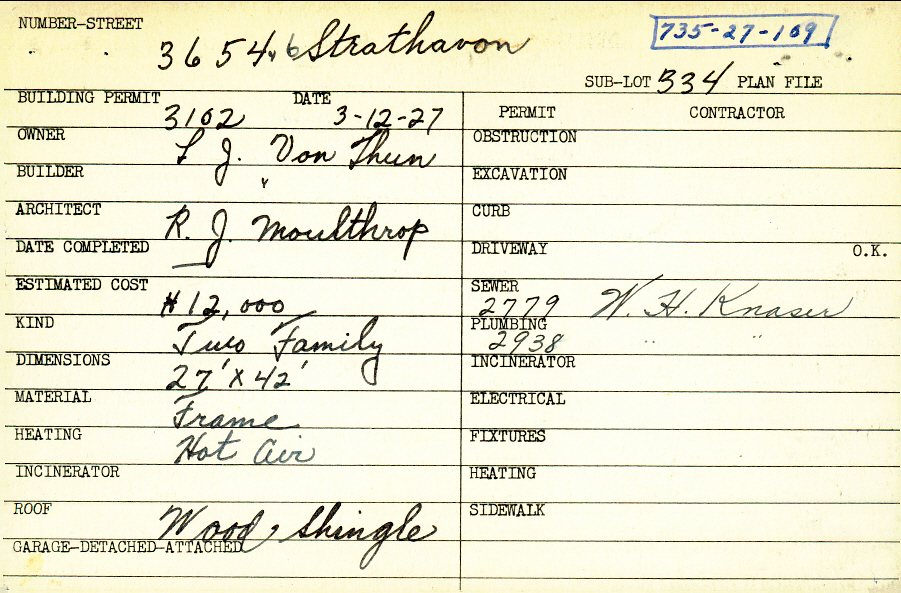 NUMBER-STREET 3654-6 Strathavon 735-27-109
SUB-LOT 334 PLAN FILE
BUILDING PERMIT 3162 DATE 3-12-27
PERMIT CONTRACTOR
OWNER L J. Von Thun
OBSTRUCTION
BUILDER "
EXCAVATION
ARCHITECT R. J. Moulthrop
CURB
DATE COMPLETED —
DRIVEWAY O.K.
ESTIMATED COST $12,000
SEWER 2779 W. H. Knaser
KIND Two Family
PLUMBING 2938 " "
DIMENSIONS 27' X 42'
INCINERATOR
MATERIAL Frame
ELECTRICAL
HEATING Hot Air
FIXTURES
INCINERATOR
HEATING
ROOF Wood Shingle
SIDEWALK
GARAGE-DETACHED-ATTACHED